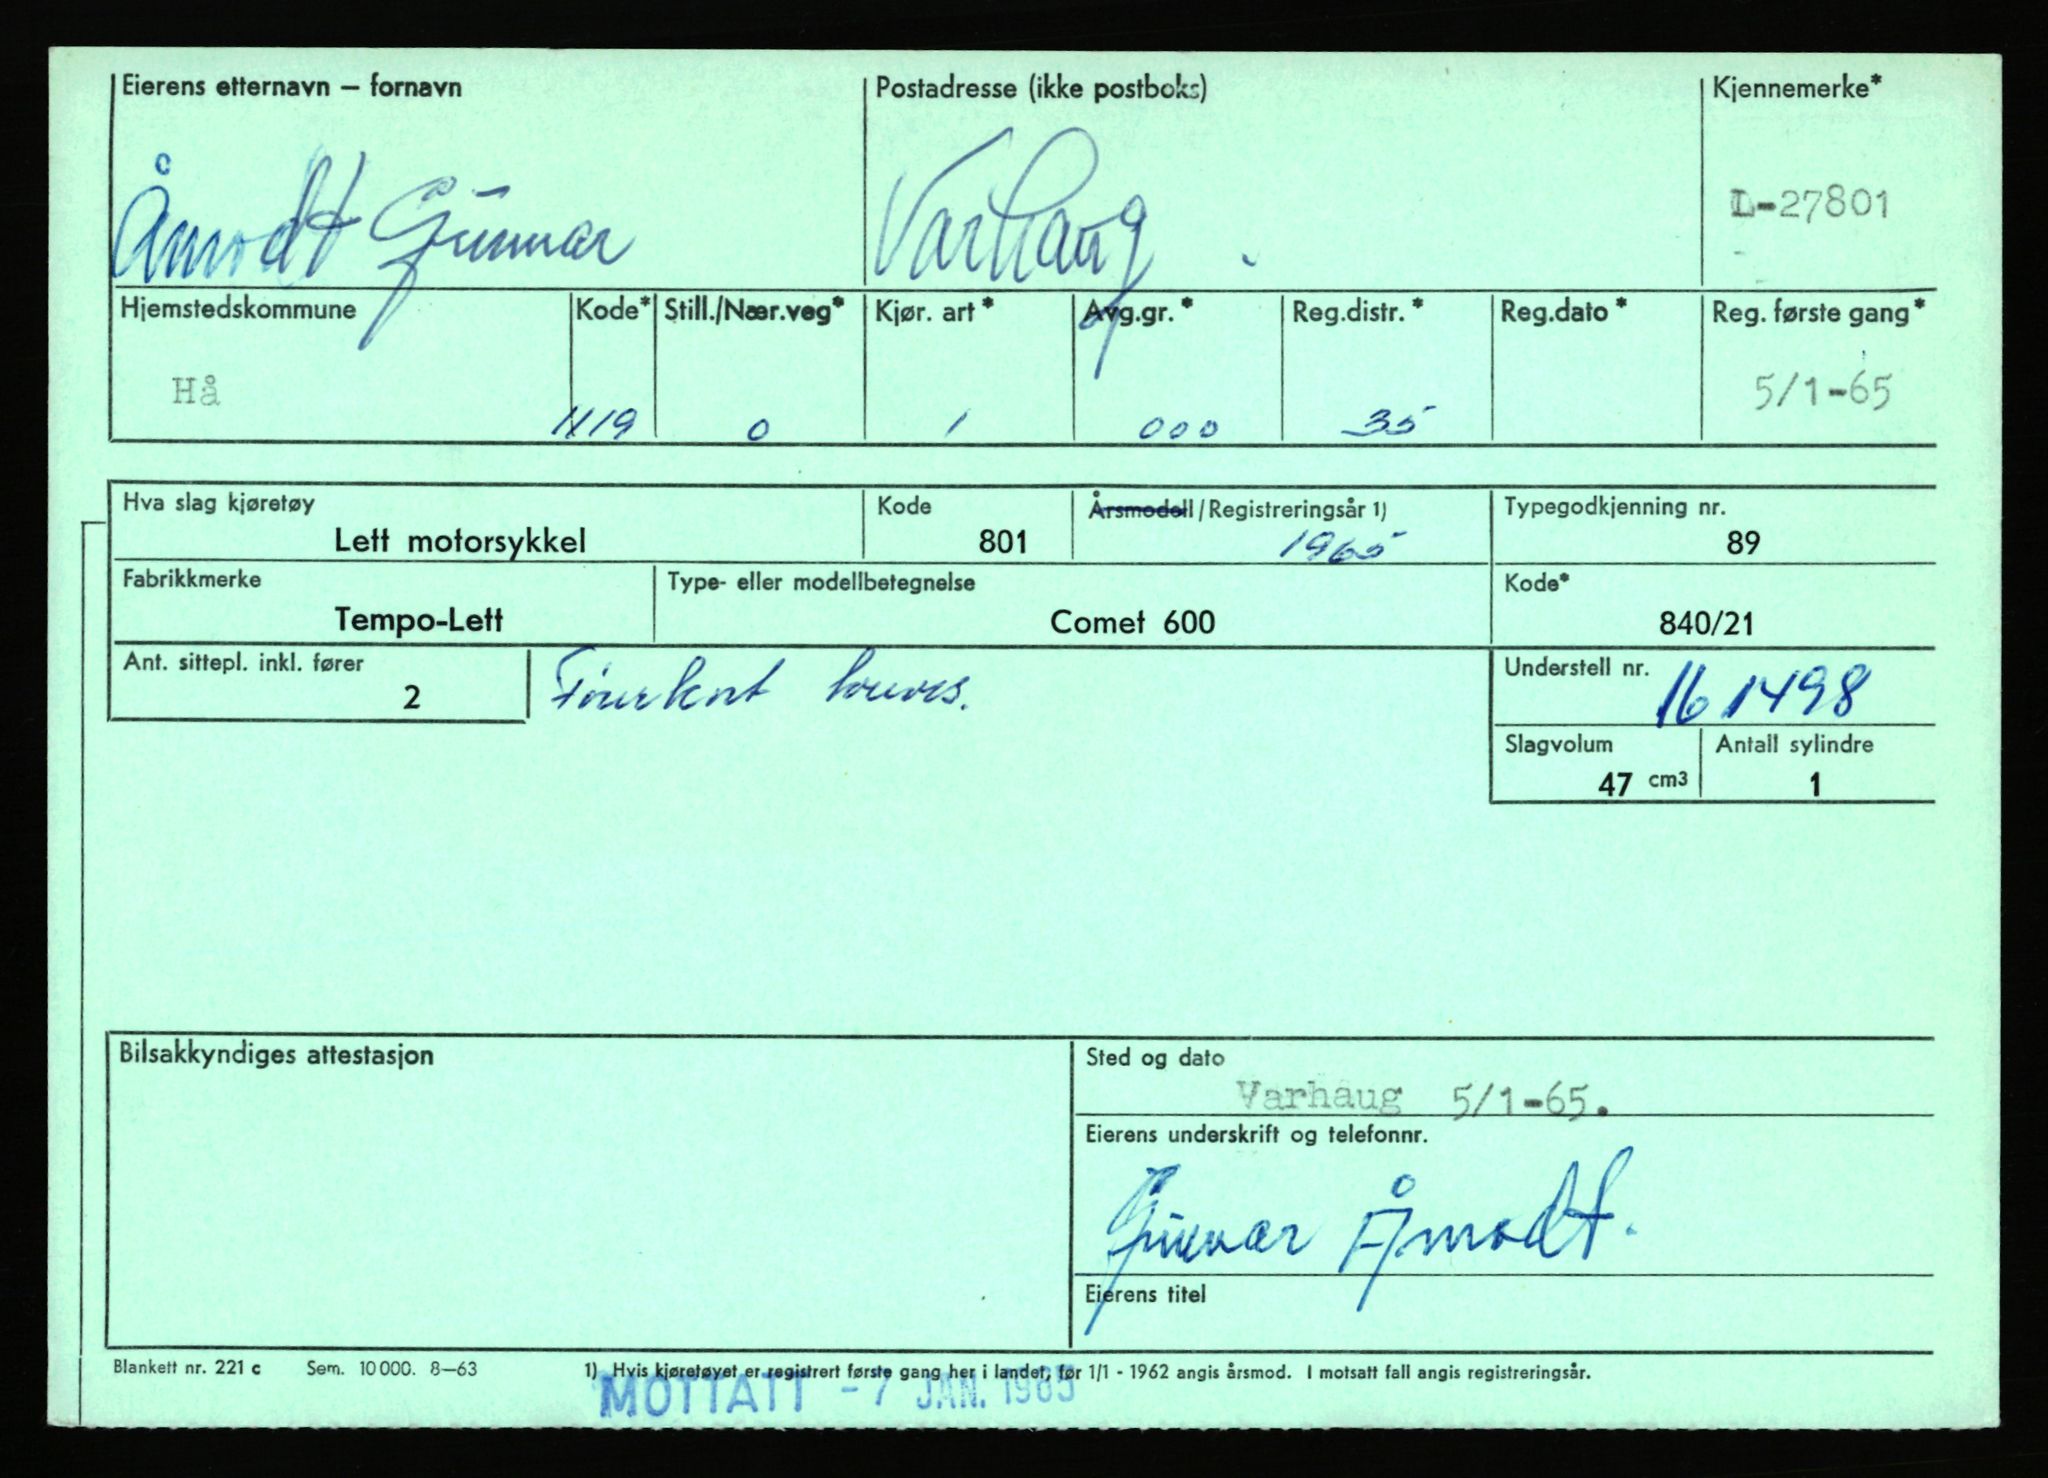 Eierens etternavn – fornavn Postadresse (ikke postboks) Kjennemerke*
Åmodt Gunnar Varhaug. L-27801
Hjemstedskommune Kode* Still./Nær.veg* Kjør. art* Avg.gr.* Reg.distr.* Reg.dato* Reg. første gang*
Hå 1119 0 1 000 35 5/1-65
Hva slag kjøretøy Kode Årsmodell/Registreringsår 1) Typegodkjenning nr.
Lett motorsykkel 801 1965 89
Fabrikkmerke Type- eller modellbetegnelse Kode*
Tempo-Lett Comet 600 840/21
Ant. sittepl. inkl. fører Understell nr.
2 161498
Slagvolum Antall sylindre
47 cm3 1
Bilsakkyndiges attestasjon Sted og dato
Varhaug 5/1-65.
Eierens underskrift og telefonnr.
Gunnar Åmodt.
Eierens titel
Blankett nr. 221 c Sem. 10 000. 8–63 1) Hvis kjøretøyet er registrert første gang her i landet, før 1/1 - 1962 angis årsmod. I motsatt fall angis registreringsår.
MOTTATT - 7 JAN. 1965